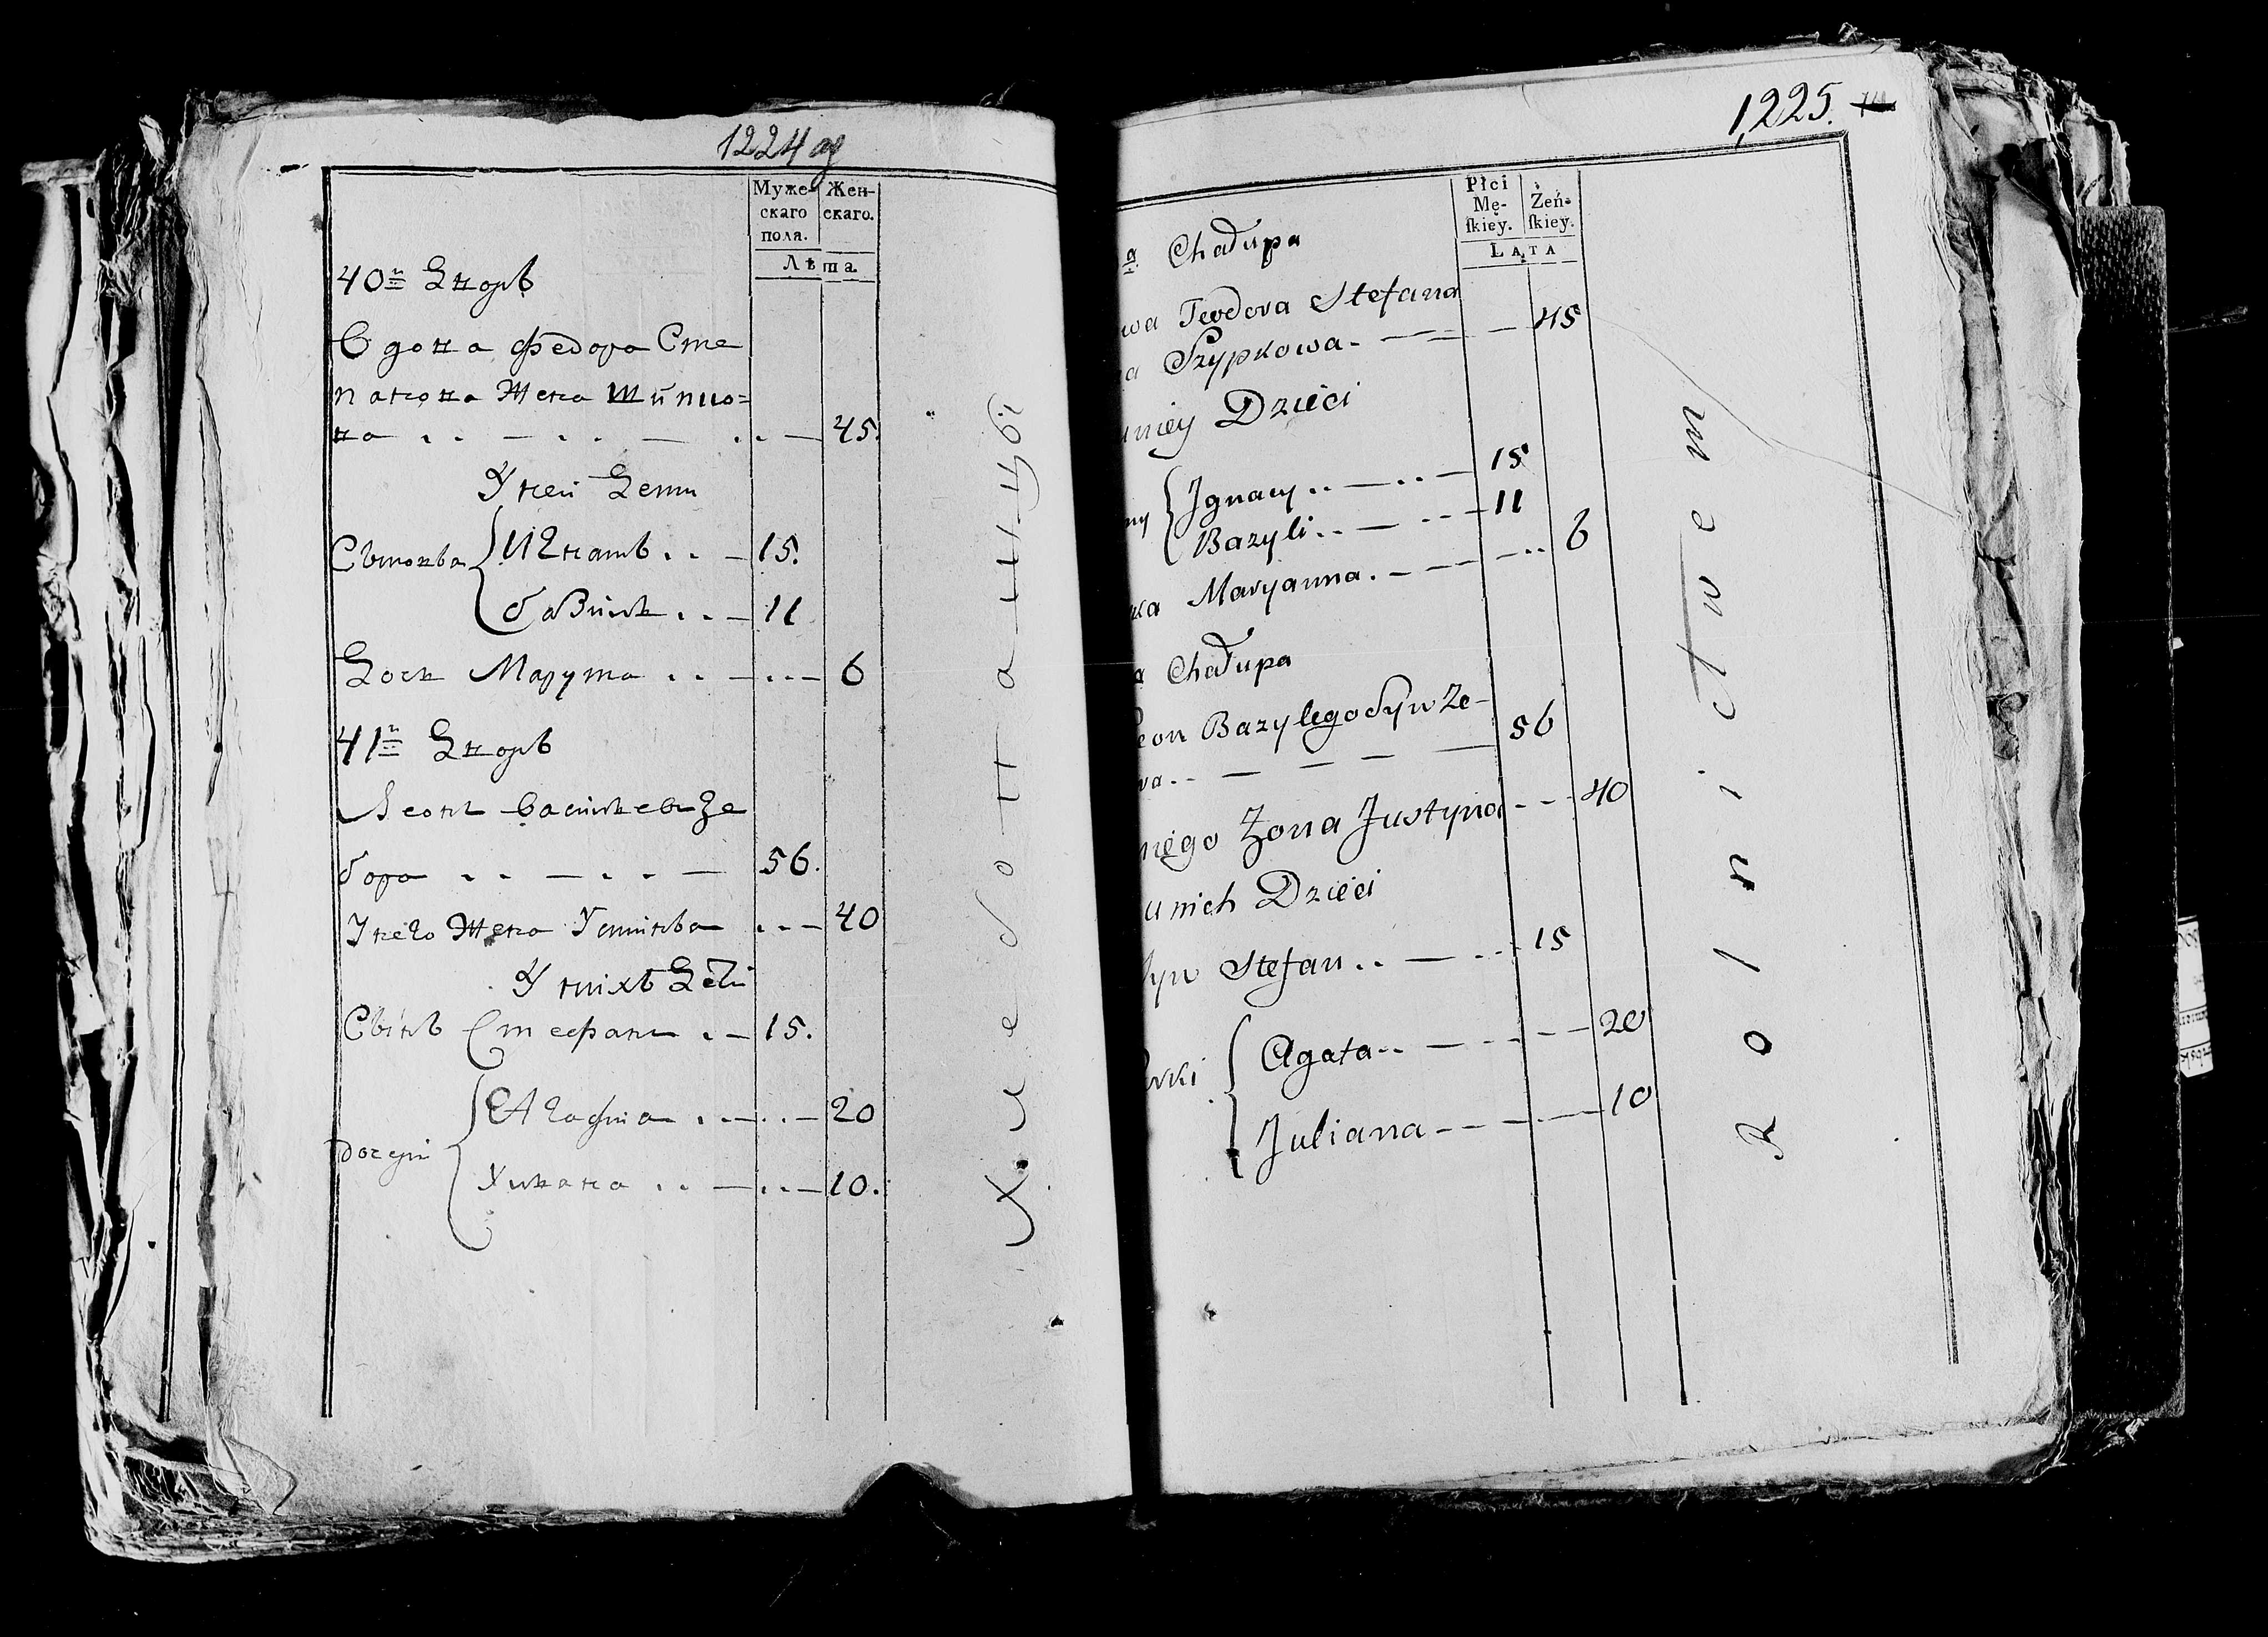 1224 об
Муже- Жен-
скаго скаго.
пола.
Лѣта.
40й Дворъ
Вдова Федора Сте
панова Жена Шипко=
ва . . — . . — . . — 45.
У неи Дети
Сыновья Игнатъ . . — 15.
Базиль . . — 11
Дочь Марута . . — . . . — 6
41й Дворъ
Леонъ Васильевъ Зе
бора . . — . . — 56.
У него Жена Устинья . . . — 40
У нихъ Дети
Сынъ Стефанъ . — 15.
Дочери Агафия . . — . . — 20
Ульяна . . — . . — 10.
Хлебопашцы
1,225.
Płci Żeń-
Mę- skiey.
skiey.
LATA
a Chałupa
wa Teodora Stefana
a Szypkowa. — — — 45
u niey Dzieci
ny Ignacy . . — . . — 15
Bazyli . . — . . — 11
ka Maryanna . — — — . . 6
a Chałupa
Leon Bazylego Syn Ze-
ra . . — — — — 56
niego Żona Justyna - - - 40
u nich Dzieci
Syn Stefan . . — - . . 15
Córki Agata . . — - - — — 20
Juliana — — - — . — 10
Rolnictwem